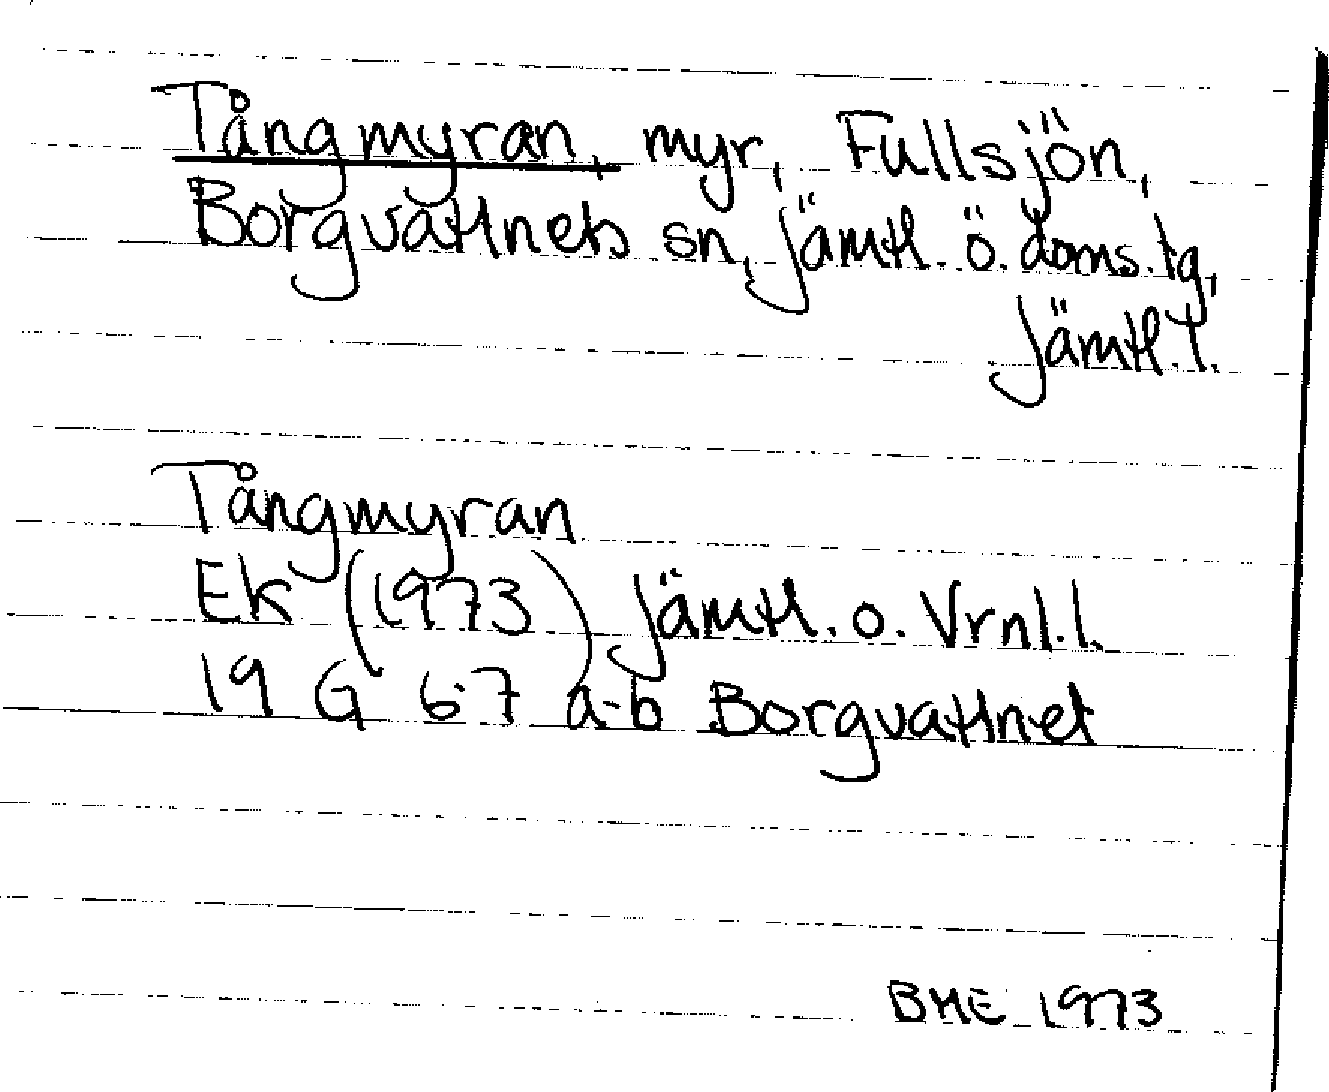 Tångmyran, myr, Fullsjön,
Borgvattnets sn, Jämtl. ö. doms.tg,
Jämtl. l.
Tångmyran
Ek (1973) Jämtl. o. Vrnl. l.
19 G 6-7 a-b Borgvattnet
BME 1973